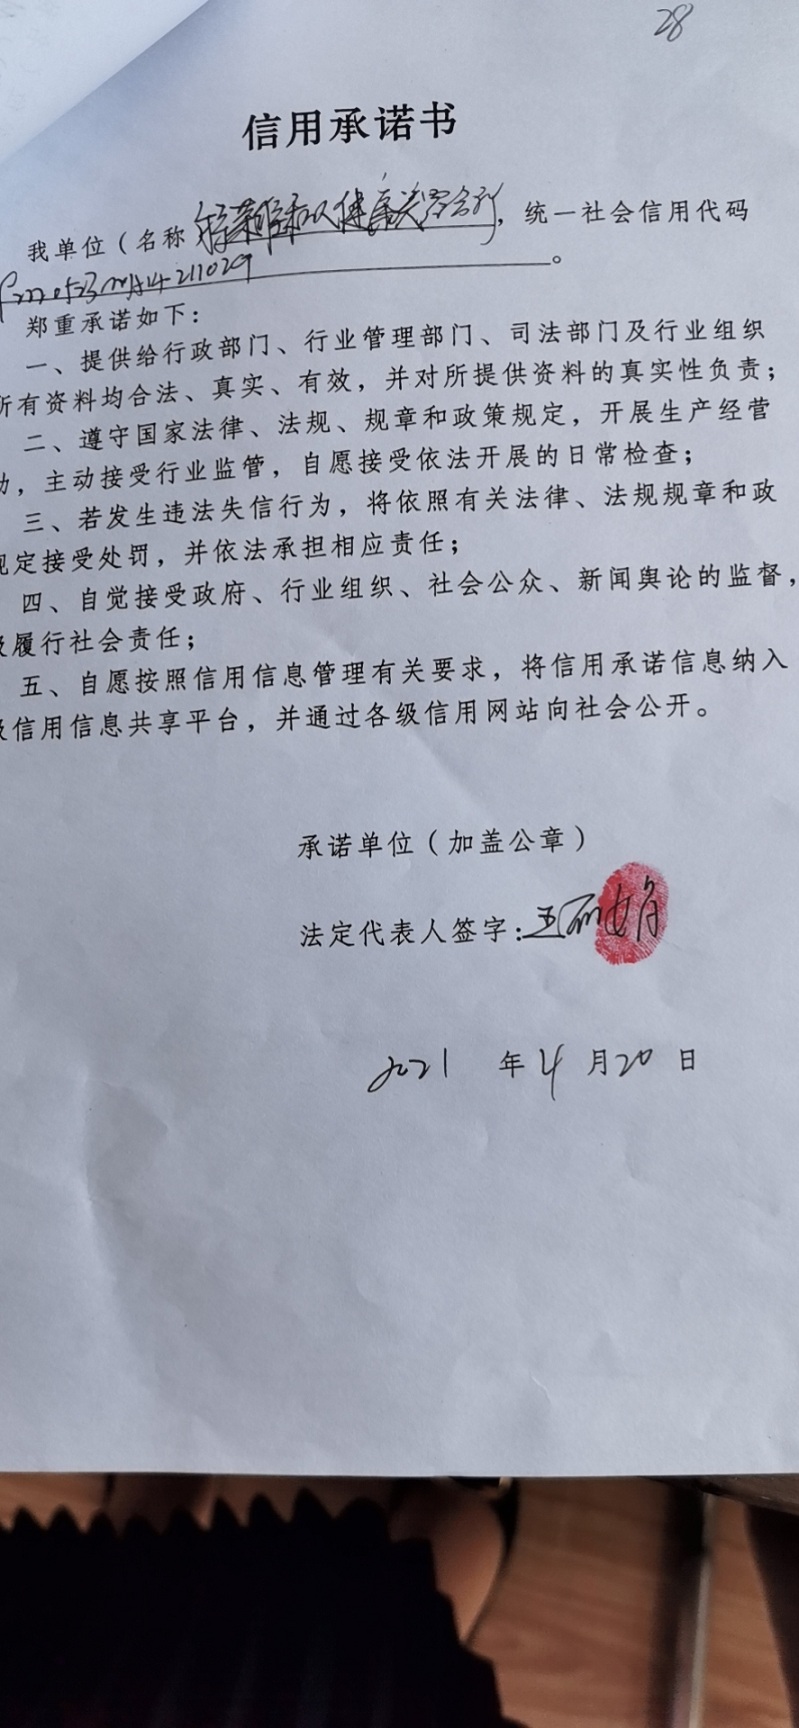 28
信用承诺书
我单位（名称 健康 ，统一社会信用代码
。
郑重承诺如下：
一、提供给行政部门、行业管理部门、司法部门及行业组织
所有资料均合法、真实、有效，并对所提供资料的真实性负责；
二、遵守国家法律、法规、规章和政策规定，开展生产经营
动，主动接受行业监管，自愿接受依法开展的日常检查；
三、若发生违法失信行为，将依照有关法律、法规规章和政
规定接受处罚，并依法承担相应责任；
四、自觉接受政府、行业组织、社会公众、新闻舆论的监督，
履行社会责任；
五、自愿按照信用信息管理有关要求，将信用承诺信息纳入
级信用信息共享平台，并通过各级信用网站向社会公开。
承诺单位（加盖公章）
法定代表人签字：王丽娟
2021 年 4 月 20 日